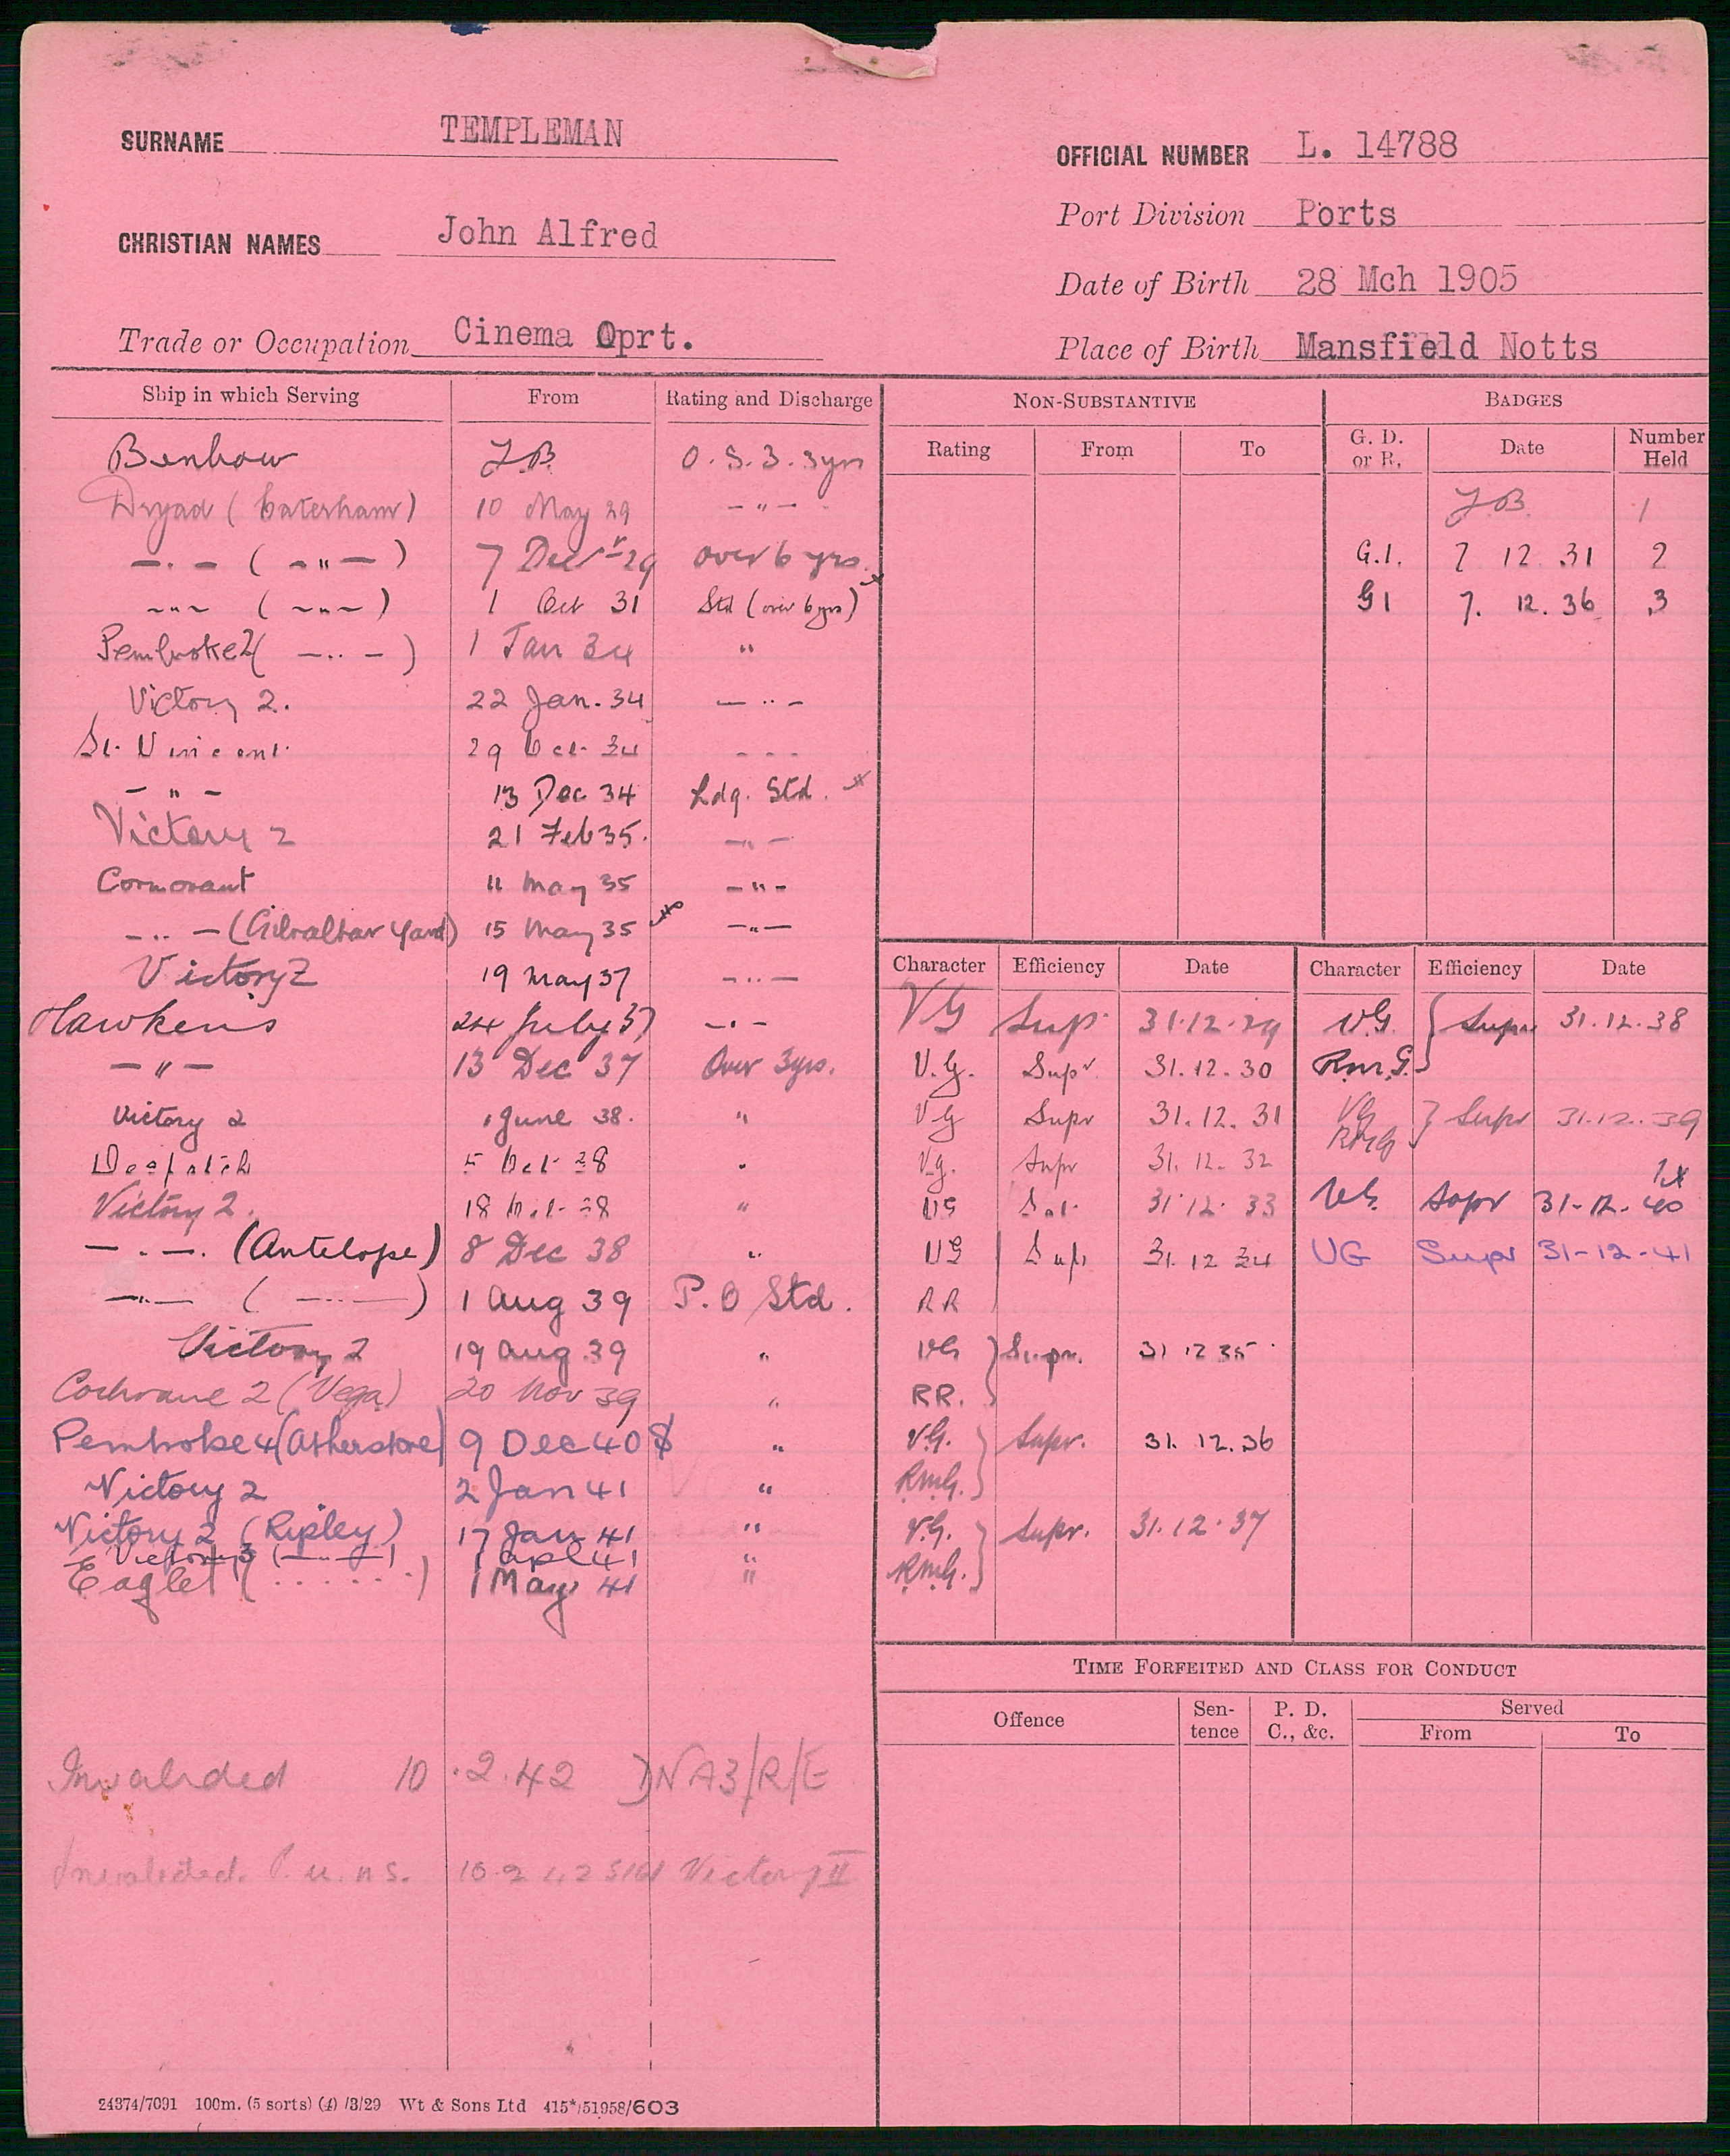 SURNAME TEMPLEMAN
OFFICIAL NUMBER L. 14788
Port Division Ports
CHRISTIAN NAMES John Alfred
Date of Birth 28 Mch 1905
Trade or Occupation Cinema Oprt.
Place of Birth Mansfield Notts
Ship in which Serving From Rating and Discharge
Benbow J.B. O.S.3. 3yrs
Dryad (Caterham) 10 May 29 - " -
- " - ( - " - ) 7 Decr 29 over 6 yrs.
- " - ( - " - ) 1 Oct 31 Std (over 6 yrs)
Pembroke 2 ( - " - ) 1 Jan 34 "
Victory 2. 22 Jan. 34 - " -
St. Vincent 29 Oct. 34 - - -
- " - 13 Dec 34 Ldg. Std.
Victory 2 21 Feb 35. - " -
Cormorant 11 May 35 - " -
- " - (Gibraltar Yard) 15 May 35 - " -
Victory 2 19 May 37 - " -
Hawkins 24 July 37 - " -
- " - 13 Dec 37 Over 3yrs.
Victory 2 1 June 38. "
Despatch 5 Oct 38 "
Victory 2. 18 Oct 38 "
- " - . (Antelope) 8 Dec 38 "
- " - ( - " - ) 1 Aug 39 P.O Std.
Victory 2 19 Aug 39 "
Cochrane 2 (Vega) 20 Nov 39 "
Pembroke 4 (Atherstone) 9 Dec 40 $ "
Victory 2 2 Jan 41 "
Victory 2 (Ripley) 17 Jan 41 "
Victory 3 ( - " - ) 1 Apl 41 "
Eaglet ( . . . . . . ) 1 May 41 "
Invalided 10.2.42 DNA3/R/E
Invalided. 10 2 42 Victory II
24374/7091 100m. (5 sorts) (4) /3/29 Wt & Sons Ltd 415*/51958/603
NON-SUBSTANTIVE
Rating From To
BADGES
G. D. or R. Date Number Held
J.B. 1
G.1. 7 12 31 2
G1 7. 12. 36 3
Character Efficiency Date Character Efficiency Date
VG Sup. 31.12.29 V.G. RmG. } Supr 31.12.38
V.G. Supr 31.12.30
VG Supr 31.12.31 VG RMG } Supr 31.12.39
V.g. Supr 31.12.32
VG Sat. 31.12.33 VG. Supr 31-12-40
VG Sup. 31.12 34 VG Supr 31-12-41
RR
VG RR. } Supr. 31 12 35
V.G. RmG. } Supr. 31.12.36
V.G. RmG. } Supr. 31.12.37
TIME FORFEITED AND CLASS FOR CONDUCT
Offence Sentence P. D. C., &c. Served
From To